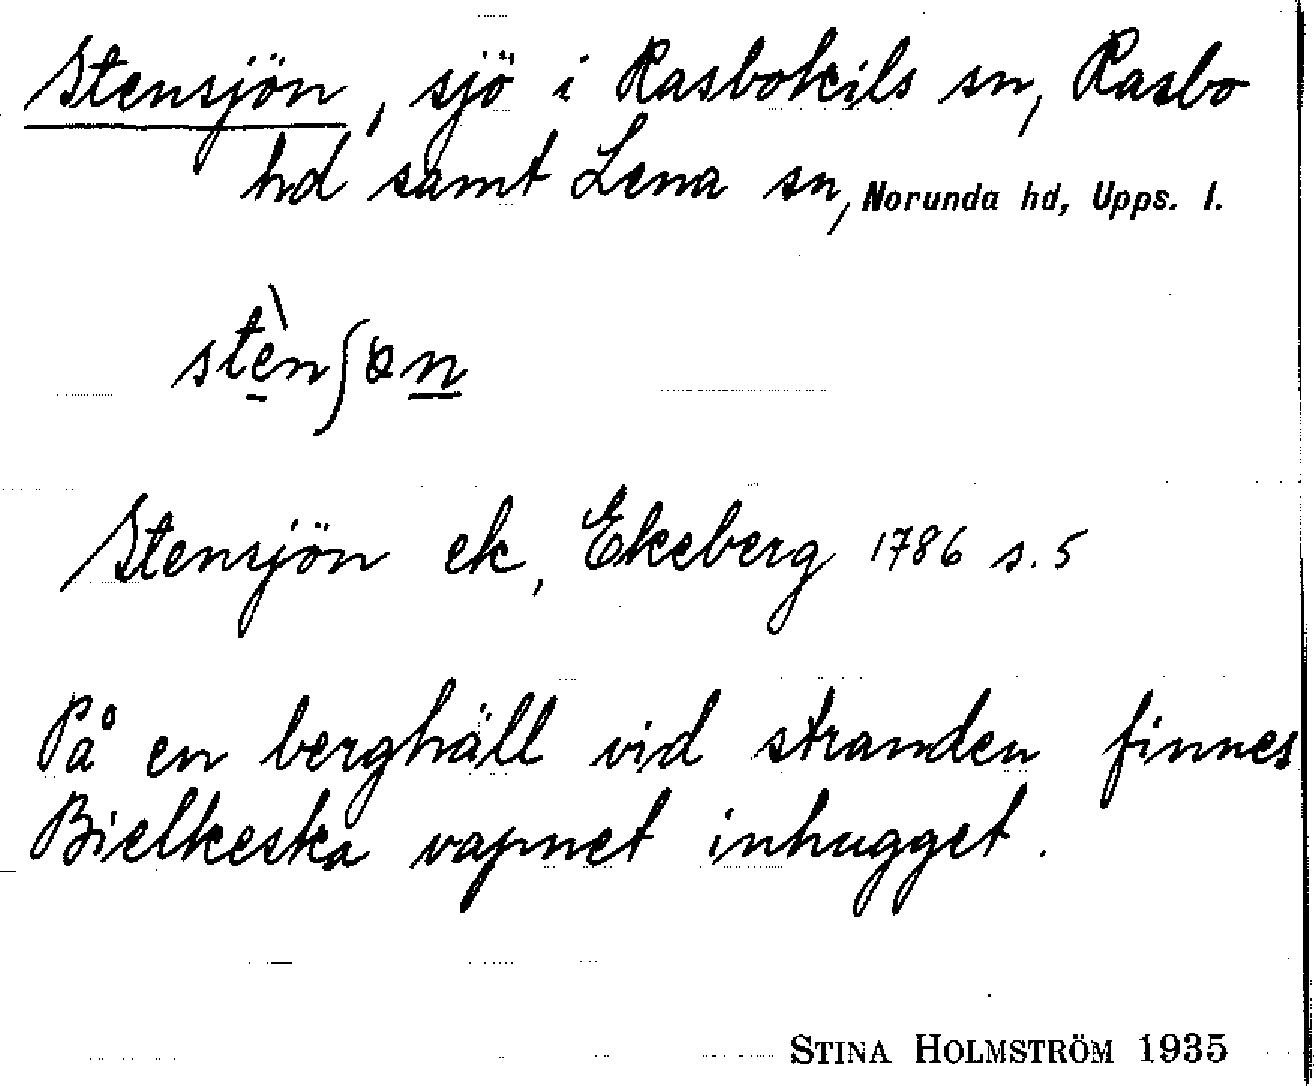 Stensjön, sjö i Rasbokils sn, Rasbo
hd samt Lena sn, Norunda hd, Upps. l.
stè̠nʃɷn̲
Stensjön ek, Ekeberg 1786 s. 5
På en berghäll vid stranden finnes
Bielkeska vapnet inhugget.
STINA HOLMSTRÖM 1935